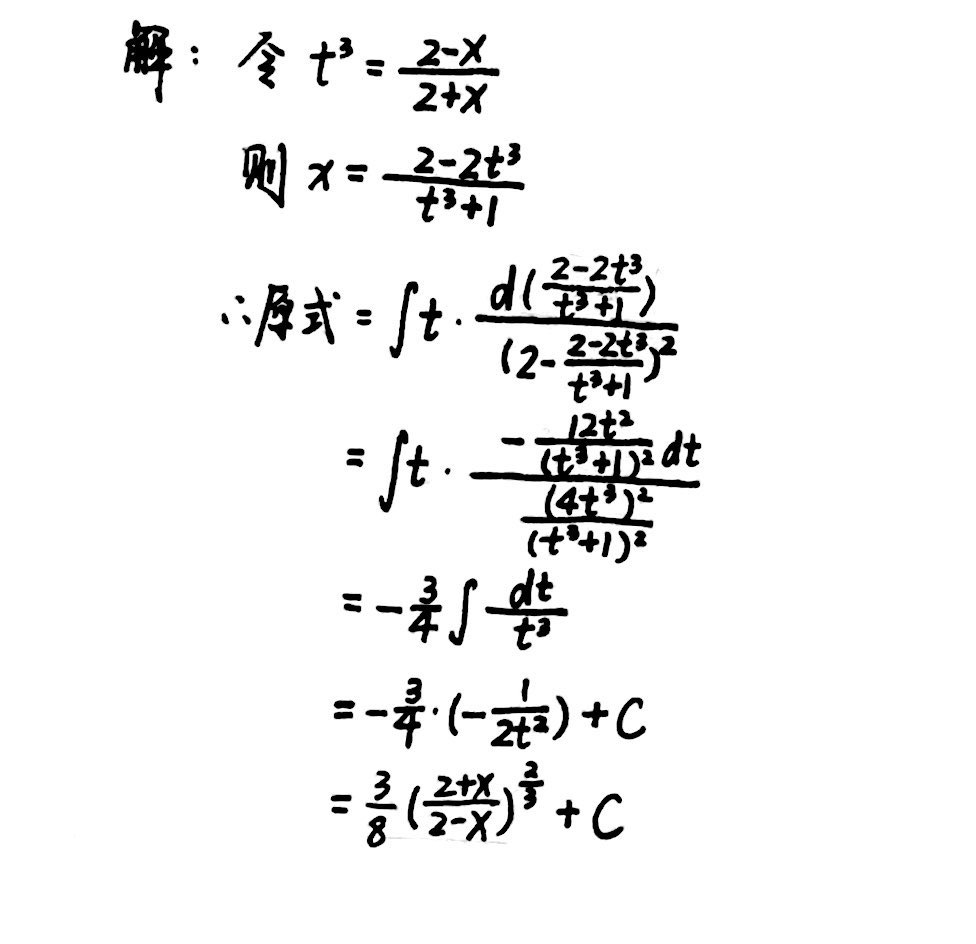 解：令 t³ = (2-x)/(2+x)
则 x = (2-2t³)/(t³+1)
∴原式 = ∫t · d((2-2t³)/(t³+1)) / (2-(2-2t³)/(t³+1))²
= ∫t · (-12t²/(t³+1)² dt) / ((4t³)²/(t³+1)²)
= -3/4 ∫ dt/t³
= -3/4 · (-1/(2t²)) + C
= 3/8 ((2+x)/(2-x))^(2/3) + C